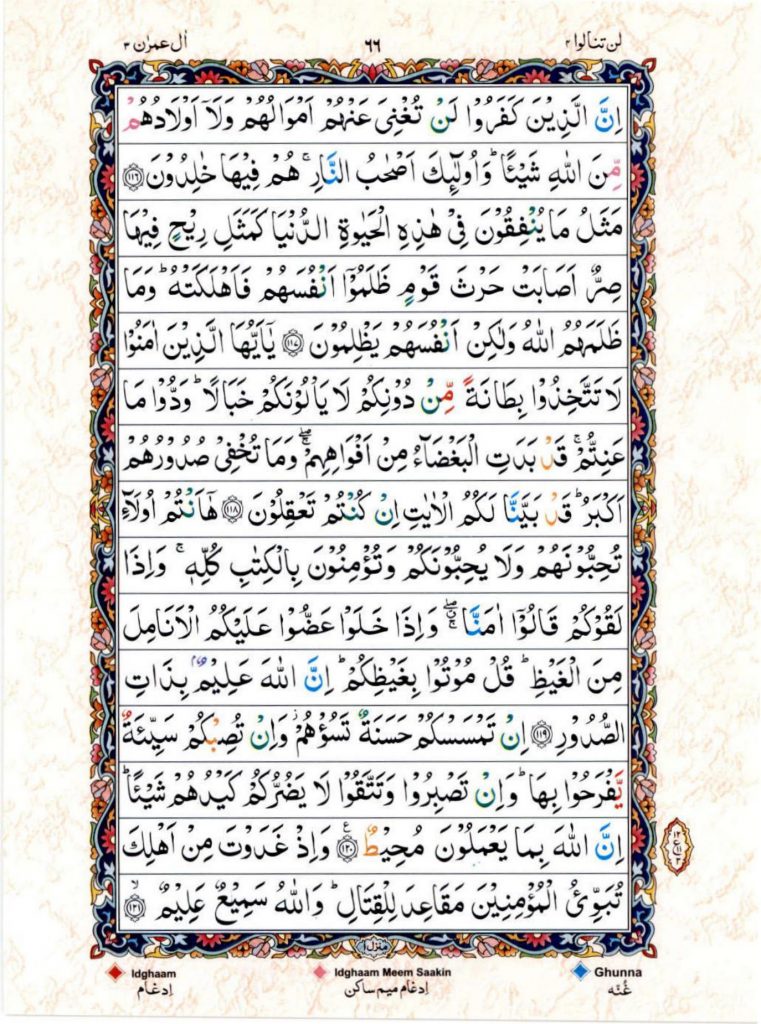 لن تنالوا ۴ ٦٦ اٰل عمرٰن ۳
اِنَّ الَّذِيْنَ كَفَرُوْا لَنْ تُغْنِىَ عَنْهُمْ اَمْوَالُهُمْ وَلَاۤ اَوْلَادُهُمْ
مِّنَ اللّٰهِ شَيْئًا ؕ وَاُولٰٓئِكَ اَصْحٰبُ النَّارِ ۚ هُمْ فِيْهَا خٰلِدُوْنَ ﴿۱۱۶﴾
مَثَلُ مَا يُنْفِقُوْنَ فِىْ هٰذِهِ الْحَيٰوةِ الدُّنْيَا كَمَثَلِ رِيْحٍ فِيْهَا
صِرٌّ اَصَابَتْ حَرْثَ قَوْمٍ ظَلَمُوْۤا اَنْفُسَهُمْ فَاَهْلَكَتْهُ ؕ وَمَا
ظَلَمَهُمُ اللّٰهُ وَلٰكِنْ اَنْفُسَهُمْ يَظْلِمُوْنَ ﴿۱۱۷﴾ يٰۤاَيُّهَا الَّذِيْنَ اٰمَنُوْا
لَا تَتَّخِذُوْا بِطَانَةً مِّنْ دُوْنِكُمْ لَا يَاْلُوْنَكُمْ خَبَالًا ؕ وَدُّوْا مَا
عَنِتُّمْ ۚ قَدْ بَدَتِ الْبَغْضَآءُ مِنْ اَفْوَاهِهِمْ ۖۚ وَمَا تُخْفِىْ صُدُوْرُهُمْ
اَكْبَرُ ؕ قَدْ بَيَّنَّا لَكُمُ الْاٰيٰتِ اِنْ كُنْتُمْ تَعْقِلُوْنَ ﴿۱۱۸﴾ هٰۤاَنْتُمْ اُولَآءِ
تُحِبُّوْنَهُمْ وَلَا يُحِبُّوْنَكُمْ وَتُؤْمِنُوْنَ بِالْكِتٰبِ كُلِّهٖ ۚ وَاِذَا
لَقُوْكُمْ قَالُوْۤا اٰمَنَّا ۖۚ وَاِذَا خَلَوْا عَضُّوْا عَلَيْكُمُ الْاَنَامِلَ
مِنَ الْغَيْظِ ؕ قُلْ مُوْتُوْا بِغَيْظِكُمْ ؕ اِنَّ اللّٰهَ عَلِيْمٌۢ بِذَاتِ
الصُّدُوْرِ ﴿۱۱۹﴾ اِنْ تَمْسَسْكُمْ حَسَنَةٌ تَسُؤْهُمْ ۫ وَاِنْ تُصِبْكُمْ سَيِّئَةٌ
يَّفْرَحُوْا بِهَا ؕ وَاِنْ تَصْبِرُوْا وَتَتَّقُوْا لَا يَضُرُّكُمْ كَيْدُهُمْ شَيْئًا ؕ
اِنَّ اللّٰهَ بِمَا يَعْمَلُوْنَ مُحِيْطٌ ﴿۱۲۰﴾ وَاِذْ غَدَوْتَ مِنْ اَهْلِكَ
تُبَوِّئُ الْمُؤْمِنِيْنَ مَقَاعِدَ لِلْقِتَالِ ؕ وَاللّٰهُ سَمِيْعٌ عَلِيْمٌ ۙ﴿۱۲۱﴾
منزل ۱
Idghaam Idghaam Meem Saakin Ghunna
اِدغَام اِدغَام میم ساکن غُنّه